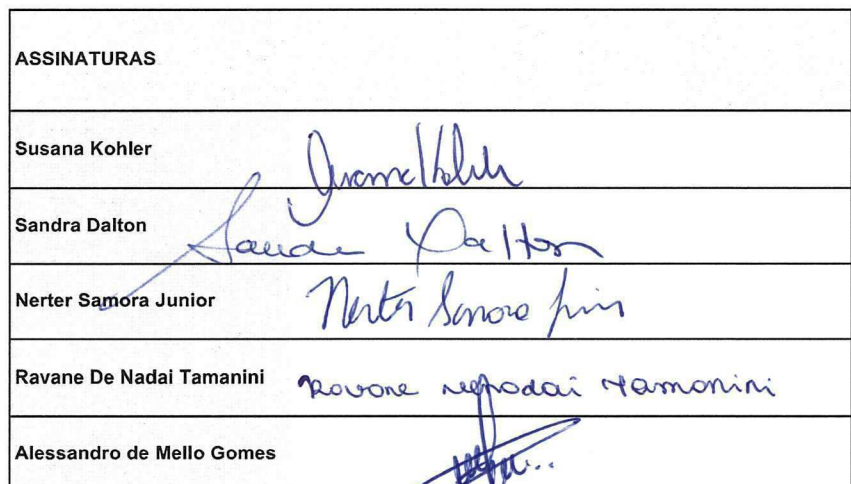 ASSINATURAS
Susana Kohler
Sandra Dalton Sandra Dalton
Nerter Samora Junior Nerter Samora
Ravane De Nadai Tamanini Ravane Tamanini
Alessandro de Mello Gomes